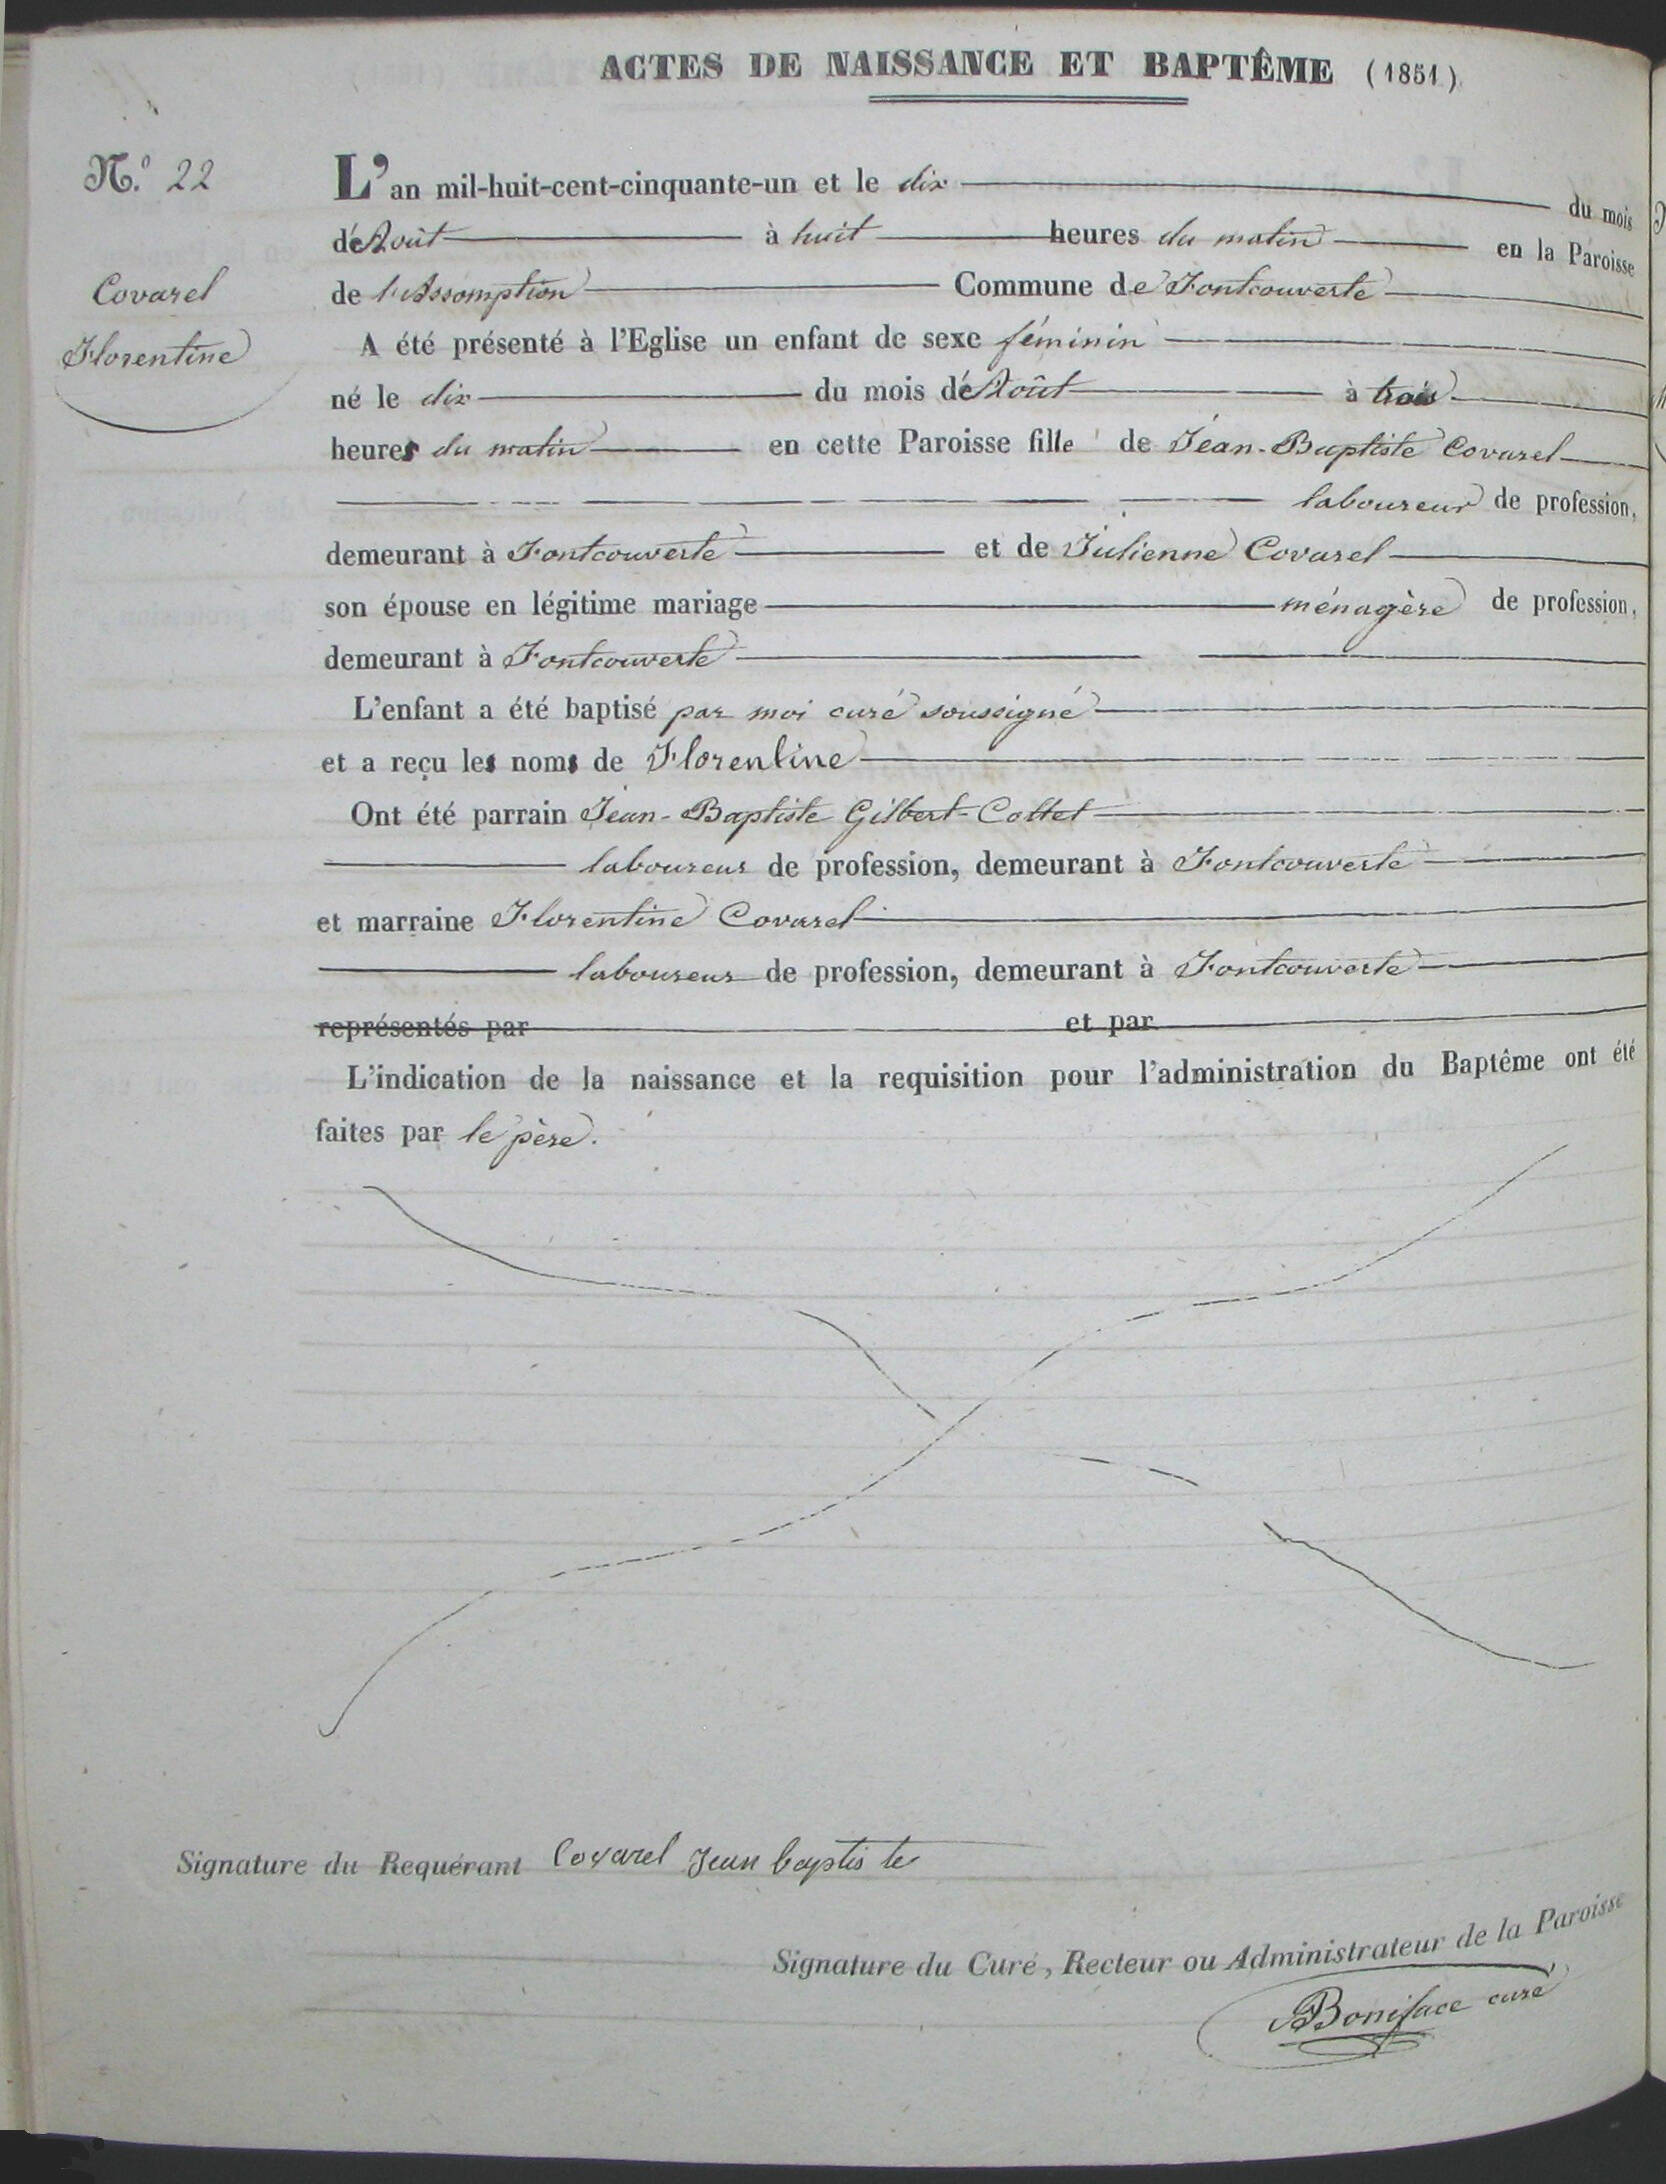 ACTES DE NAISSANCE ET BAPTÊME (1851)
N.º 22
Covarel
Florentine
L'an mil-huit-cent-cinquante-un et le dix du mois
d'Août à huit heures du matin en la Paroisse
de l'Assomption Commune de Fontcouverte
A été présenté à l'Eglise un enfant de sexe féminin
né le dix du mois d'Août à trois
heures du matin en cette Paroisse fille de Jean-Baptiste Covarel
laboureur de profession,
demeurant à Fontcouverte et de Julienne Covarel
son épouse en légitime mariage ménagère de profession,
demeurant à Fontcouverte
L'enfant a été baptisé par moi curé soussigné
et a reçu les noms de Florentine
Ont été parrain Jean-Baptiste Gilbert-Collet
laboureur de profession, demeurant à Fontcouverte
et marraine Florentine Covarel
laboureur de profession, demeurant à Fontcouverte
représentés par et par
L'indication de la naissance et la requisition pour l'administration du Baptême ont été
faites par le père.
Signature du Requérant Covarel Jean baptiste
Signature du Curé, Recteur ou Administrateur de la Paroisse
Boniface curé